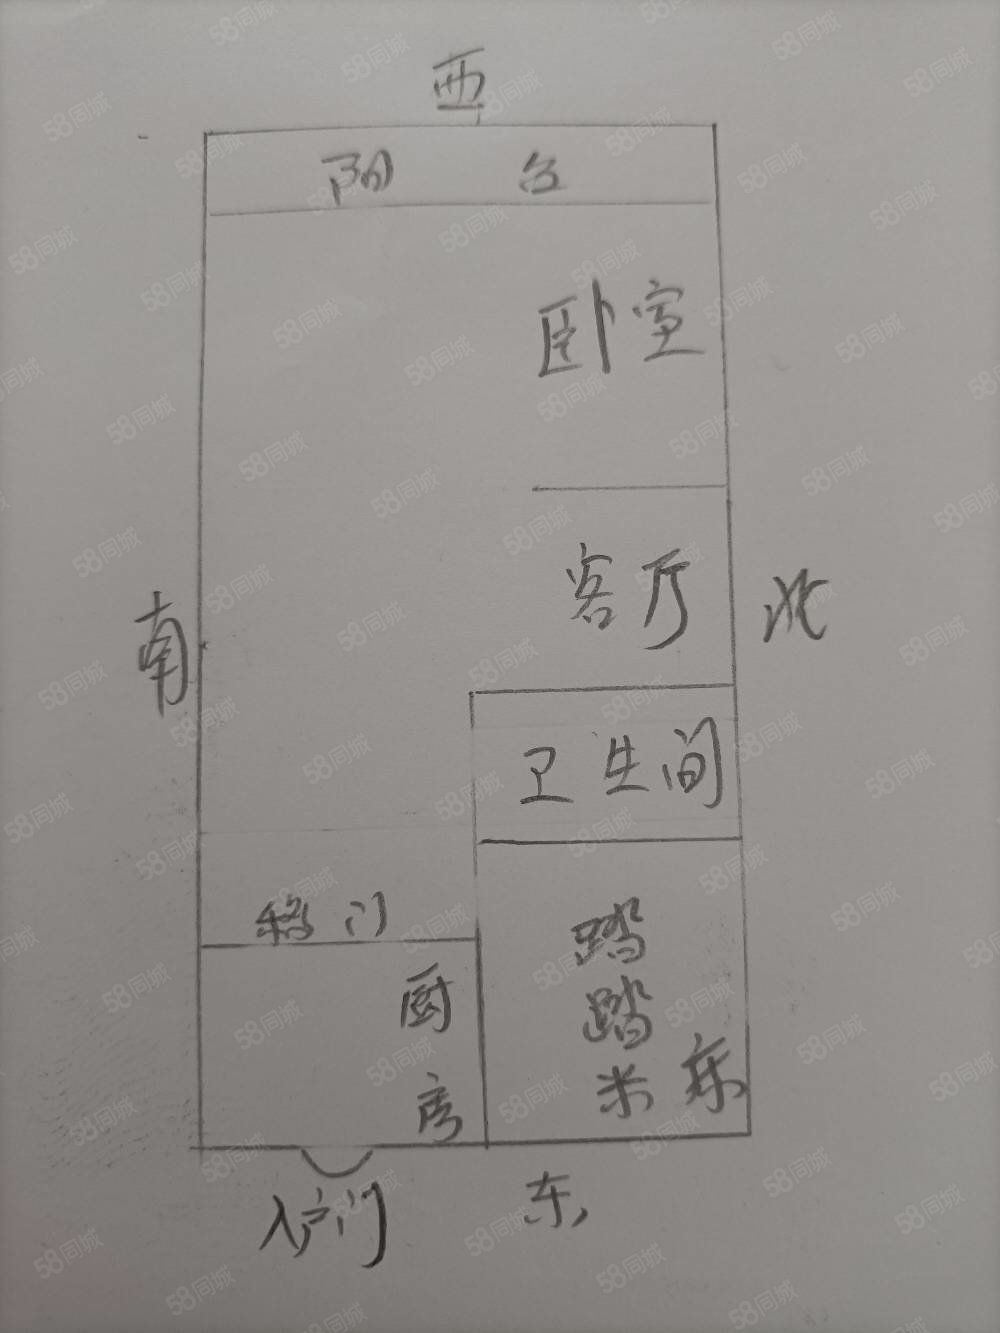 西
阳 台
卧室
客厅
南
北
卫生间
移门
厨房
踏踏米
东
入户门
58同城